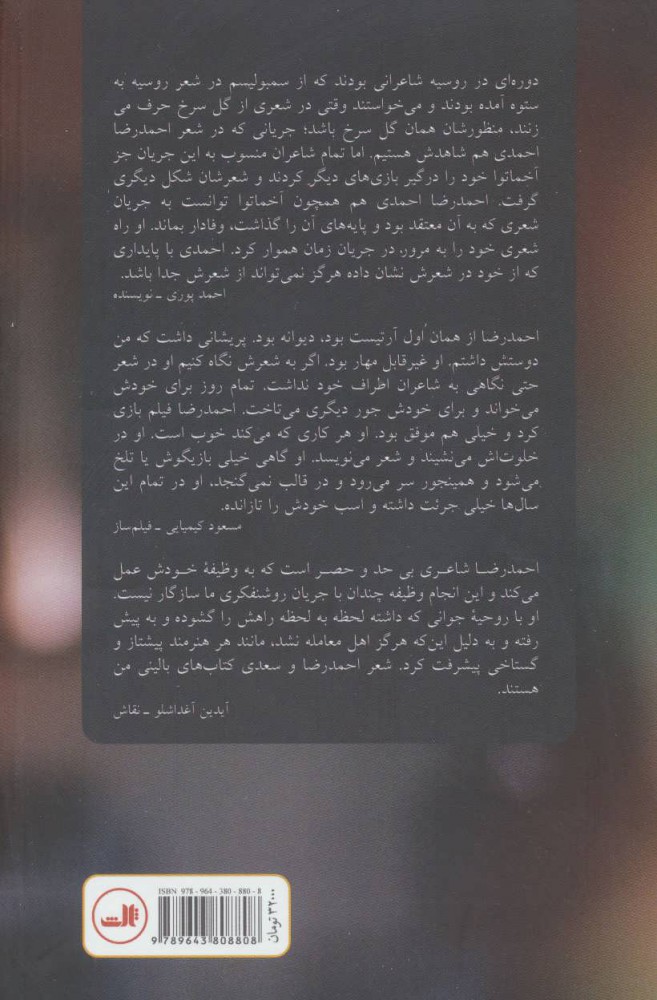 دوره‌ای در روسیه شاعرانی بودند که از سمبولیسم در شعر روسیه به
ستوه آمده بودند و می‌خواستند وقتی در شعری از گل سرخ حرف می
زنند، منظورشان همان گل سرخ باشد؛ جریانی که در شعر احمدرضا
احمدی هم شاهدش هستیم. اما تمام شاعران منسوب به این جریان جز
آخماتوا خود را درگیر بازی‌های دیگر کردند و شعرشان شکل دیگری
گرفت. احمدرضا احمدی هم همچون آخماتوا توانست به جریان
شعری که به آن معتقد بود و پایه‌های آن را گذاشت، وفادار بماند. او راه
شعری خود را به مرور، در جریان زمان هموار کرد. احمدی با پایداری
که از خود در شعرش نشان داده هرگز نمی‌تواند از شعرش جدا باشد.
احمد پوری ـ نویسنده
احمدرضا از همان اول آرتیست بود، دیوانه بود. پریشانی داشت که من
دوستش داشتم. او غیرقابل مهار بود. اگر به شعرش نگاه کنیم او در شعر
حتی نگاهی به شاعران اطراف خود نداشت. تمام روز برای خودش
می‌خواند و برای خودش جور دیگری می‌تاخت. احمدرضا فیلم بازی
کرد و خیلی هم موفق بود. او هر کاری که می‌کند خوب است. او در
خلوت‌اش می‌نشیند و شعر می‌نویسد. او گاهی خیلی بازیگوش یا تلخ
می‌شود و همینجور سر می‌رود و در قالب نمی‌گنجد، او در تمام این
سال‌ها خیلی جرئت داشته و اسب خودش را تازانده.
مسعود کیمیایی ـ فیلم‌ساز
احمدرضا شاعری بی حد و حصر است که به وظیفهٔ خودش عمل
می‌کند و این انجام وظیفه چندان با جریان روشنفکری ما سازگار نیست.
او با روحیهٔ جوانی که داشته لحظه به لحظه راهش را گشوده و به پیش
رفته و به دلیل این‌که هرگز اهل معامله نشد، مانند هر هنرمند پیشتاز و
گستاخی پیشرفت کرد. شعر احمدرضا و سعدی کتاب‌های بالینی من
هستند.
آیدین آغداشلو ـ نقاش
ISBN 978 - 964 - 380 - 880 - 8
9 789643 808808
۳۲۰۰۰ تومان
ثالث